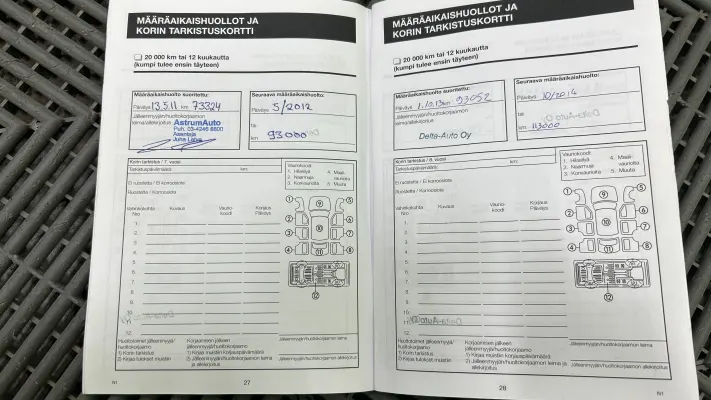 MÄÄRÄAIKAISHUOLLOT JA
KORIN TARKISTUSKORTTI
20 000 km tai 12 kuukautta
(kumpi tulee ensin täyteen)
Määräaikaishuolto suoritettu:
Päiväys 13.5.11 km 73324
Jälleenmyyjän/huoltokorjaamon
leima/allekirjoitus
AstrumAuto
Puh. 03-4246 8800
Seuraava määräaikaishuolto:
Päiväys 5/2012
tai
km 93000
Korin tarkistus / 7. vuosi
Tarkistuspäivämäärä: km:
Ei ruostetta / Ei korroosiota
Ruostetta / Korroosiota
Vauriokoodi:
1. Hilseilyä
2. Naarmuja
3. Korvaurioita
4. Maali-
vaurioita
5. Muuta
Vahinkokohta
No:
Kuvaus
Vaurio-
koodi
Korjaus
Päiväys
1.
2.
3.
4.
5.
6.
7.
8.
9.
10.
11.
12.
1 2 3 4 5 6 7 8 9 10 11 12
Huoltotoimet jälleenmyyjä/
huoltokorjaamo
1) Korin tarkistus
2) Kirjaa tulokset muistiin
Korjaamisen jälkeen
jälleenmyyjä/huoltokorjaamo
1) Kirjaa muistiin korjauspäivämäärä
2) Jälleenmyyjän/huoltokorjaamon leima ja
allekirjoitus
Jälleenmyyjän/huoltokorjaamon leima
Jälleenmyyjän/huoltokorjaamon allekirjoitus
N1
27
MÄÄRÄAIKAISHUOLLOT JA
KORIN TARKISTUSKORTTI
20 000 km tai 12 kuukautta
(kumpi tulee ensin täyteen)
Määräaikaishuolto suoritettu:
Päiväys 1.10.13 km 93052
Jälleenmyyjän/huoltokorjaamon
leima/allekirjoitus
Delta-Auto Oy
Seuraava määräaikaishuolto:
Päiväys 10/2014
tai
km 113000
Korin tarkistus / 8. vuosi
Tarkistuspäivämäärä: km:
Ei ruostetta / Ei korroosiota
Ruostetta / Korroosiota
Vauriokoodi:
1. Hilseilyä
2. Naarmuja
3. Korvaurioita
4. Maali-
vaurioita
5. Muuta
Vahinkokohta
Nro
Kuvaus
Vaurio-
koodi
Korjaus
Päiväys
1.
2.
3.
4.
5.
6.
7.
8.
9.
10.
11.
12.
1 2 3 4 5 6 7 8 9 10 11 12
Huoltotoimet jälleenmyyjä/
huoltokorjaamo
1) Korin tarkistus
2) Kirjaa tulokset muistiin
Korjaamisen jälkeen
jälleenmyyjä/huoltokorjaamo
1) Kirjaa muistiin korjauspäivämäärä
2) Jälleenmyyjän/huoltokorjaamon leima ja
allekirjoitus
Jälleenmyyjän/huoltokorjaamon leima
Jälleenmyyjän/huoltokorjaamon allekirjoitus
28
N1